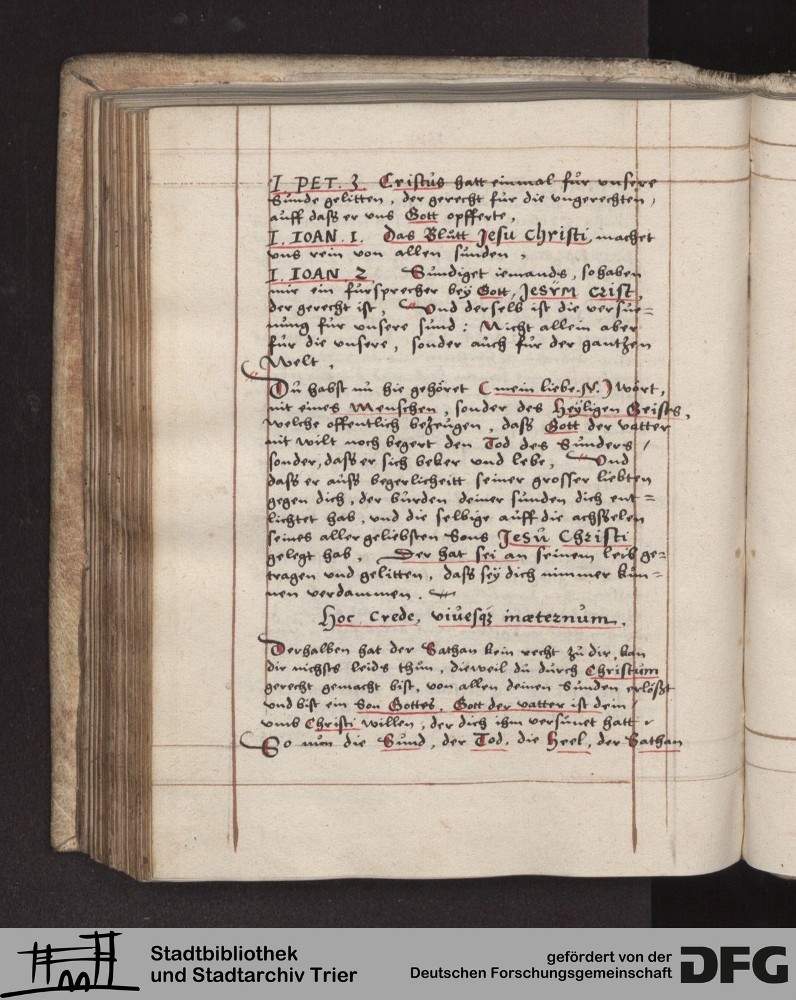 I. PET. 3. Cristus hatt einmal für vnsere
Sünde gelitten, der gerecht für die vngerechten,
auff dass er vns Gott opfferte,
I. IOAN. I. Das Blůtt Jesu Christi, machet
vns rein von allen sünden,
I. IOAN. 2 Sündiget iemands, so haben
mir ein fürsprecher beÿ Gott, JESVM CRIST,
der gerecht ist, Vnd derselb ist die versüe=
nung für vnsere sünd: Nicht allein aber
für die vnsere, sonder auch für der gantzen
Welt,
Du habst nů hie gehöret (mein liebe. N.) wort,
nit eines Menschen, sonder des Heÿligen Geists,
welche offentlich bezeugen, dass Gott der vatter
nit wilt noch begert den Tod des Sünders,
sonder, dass er sich beker vnd lebe, Vnd
dass er auss begerlicheitt seiner grosser liebten
gegen dich, der bürden deiner sünden dich ent=
lichtet hab, vnd die selbige auff die achsselen
seines aller geliebsten Sons Jesu Christi
gelegt hab, Der hat sei an seinem leib ge=
tragen vnd gelitten, dass seÿ dich nimmer kün=
nen verdammen.
Hoc Crede, viuesq; inæternum.
Derhalben hat der Sathan kein recht zů dir, kan
dir nichsts leids thůn, dieweil du durch Christum
gerecht gemacht bist, von allen deinen Sünden erlösst
vnd bist ein Son Gottes, Gott der vatter ist dein
vmb Christi willen, der dich ihm versünet hatt.
So nůn die Sünd, der Tod, die Heel, der Sathan
Stadtbibliothek
und Stadtarchiv Trier
gefördert von der
Deutschen Forschungsgemeinschaft
DFG